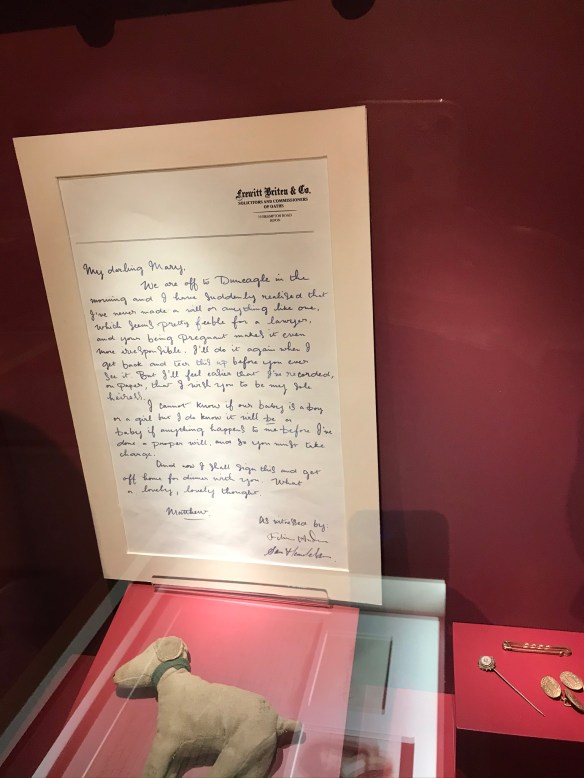 Frewitt Briten & Co.
SOLICITORS AND COMMISSIONERS
OF OATHS
My darling Mary,
We are off to Duneagle in the
morning and I have suddenly realised that
I've never made a will or anything like one,
which seems pretty feeble for a lawyer,
and your being pregnant makes it even
more irresponsible. I'll do it again when I
get back and tear this up before you ever
see it. But I'll feel easier that I've recorded,
on paper, that I wish you to be my sole
heiress.
I cannot know if our baby is a boy
or a girl but I do know it will be a
baby if anything happens to me before I've
done a proper will, and so you must take
charge.
And now I shall sign this and get
off home for dinner with you. What
a lovely, lovely thought
Matthew
As witnessed by: